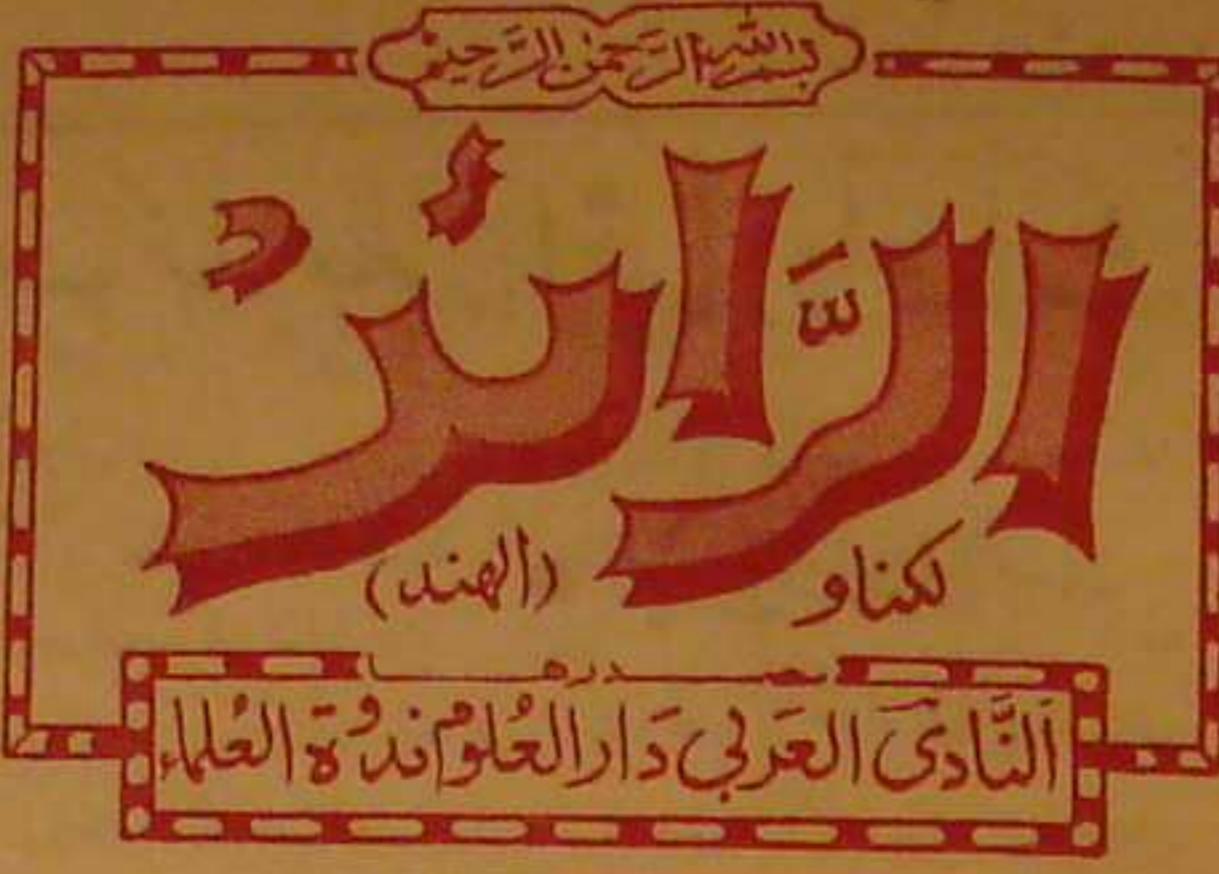 بسم الله الرحمن الرحيم
الرَّائدُ
لكناو (الهند)
يصدرها
اَلنَّادى العَرَبي دَارالعُلوم ندْوَة العُلماء